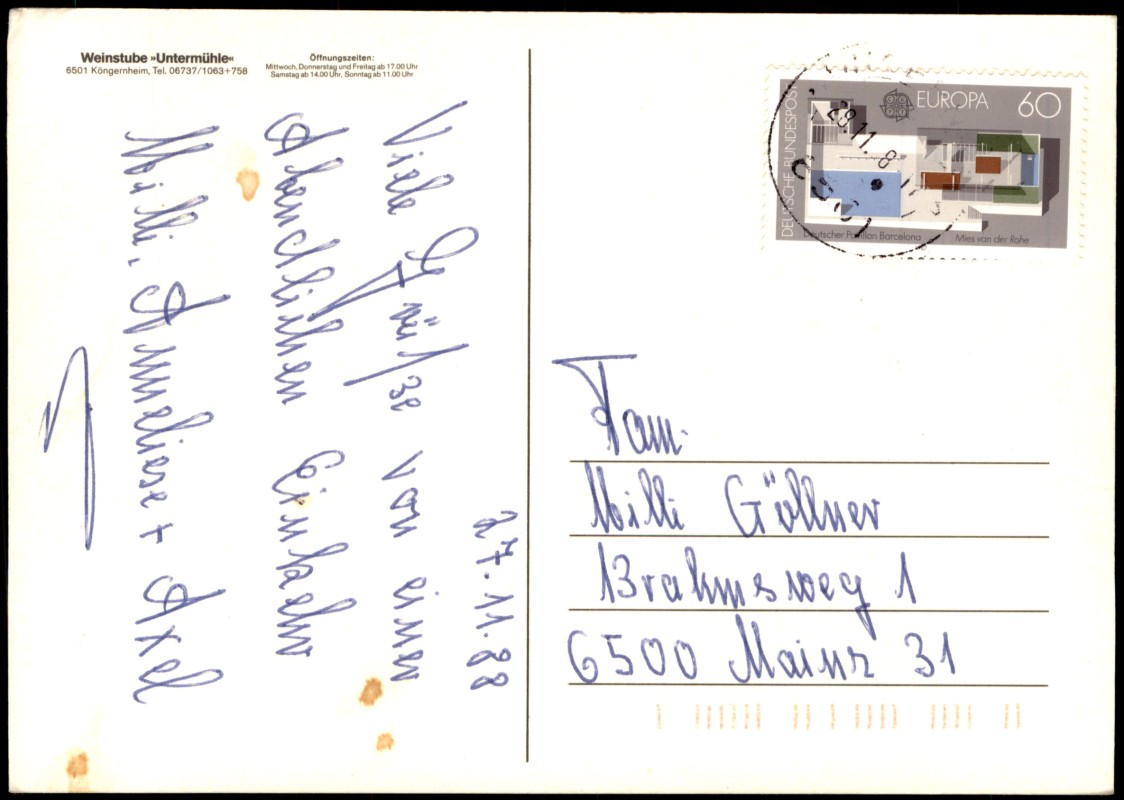 Weinstube »Untermühle«
6501 Köngernheim, Tel. 06737/1063+758
Öffnungszeiten:
Mittwoch, Donnerstag und Freitag ab 17.00 Uhr
Samstag ab 14.00 Uhr, Sonntag ab 11.00 Uhr
27.11.88
Viele Grüße von einer
Abendlichen Einkehr
Milli, Anneliese + Axel
DEUTSCHE BUNDESPOST
EUROPA 60
CEPT
Deutscher Pavillon Barcelona Mies van der Rohe
28.11.8
Fam.
Milli Göllner
Brahmsweg 1
6500 Mainz 31